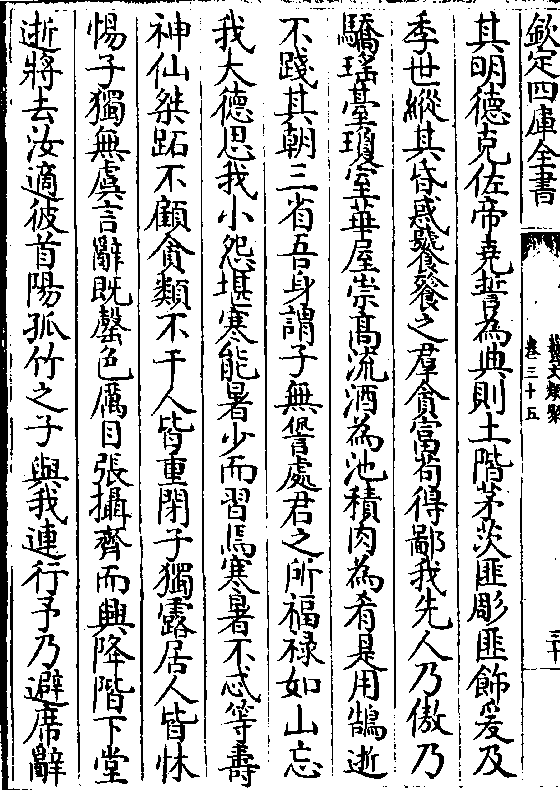 欽定四庫全書
藝文類聚
卷三十五
其明德克佐帝堯誓為典則土階茅茨匪彫匪飾爰及
季世縱其昏惑饕餮之羣貪富苟得鄙我先人乃傲乃
驕瑤臺瓊室華屋崇高流酒為池積肉為肴是用鵠逝
不踐其朝三省吾身謂子無諐處君之所福祿如山忘
我大德思我小怨堪寒能暑少而習焉寒暑不忒等壽
神仙桀跖不顧貪類不干人皆重閉子獨露居人皆怵
惕子獨無虞言辭既罄色厲目張攝齊而興降階下堂
逝將去汝適彼首陽孤竹之子與我連行予乃避席辭